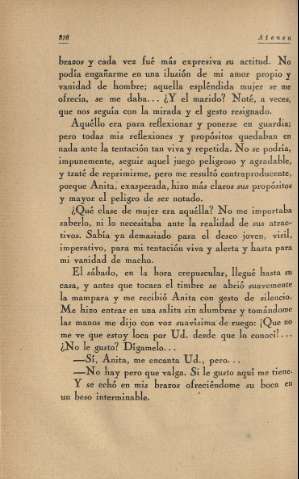 236 Atenea
brazos y cada vez fué más expresiva su actitud. No
podía engañarme en una ilusión de mi amor propio y
vanidad de hombre; aquella espléndida mujer se me
ofrecía, se me daba... ¿Y el marido? Noté, a veces,
que nos seguía con la mirada y el gesto resignado.
Aquéllo era para reflexionar y ponerse en guardia;
pero todas mis reflexiones y propósitos quedaban en
nada ante la tentación tan viva y repetida. No se podría,
impunemente, seguir aquel juego peligroso y agradable,
y traté de reprimirme, pero me resultó contraproducente,
porque Anita, exasperada, hizo más claros sus propósitos
y mayor el peligro de ser notado.
¿Qué clase de mujer era aquélla? No me importaba
saberlo, ni lo necesitaba ante la realidad de sus atrac-
tivos. Sabía ya demasiado para el deseo joven, viril,
imperativo, para mi tentación viva y alerta y hasta para
mi vanidad de macho.
El sábado, en la hora crepuscular, llegué hasta su
casa, y antes que tocara el timbre se abrió suavemente
la mampara y me recibió Anita con gesto de silencio.
Me hizo entrar en una salita sin alumbrar y tomándome
las manos me dijo con voz suavísima de ruego: ¡Que no
me ve que estoy loca por Ud. desde que lo conocí!...
¿No le gusto? Dígamelo...
—Sí, Anita, me encanta Ud., pero...
—No hay pero que valga. Si le gusto aquí me tiene.
Y se echó en mis brazos ofreciéndome su boca en
un beso interminable.